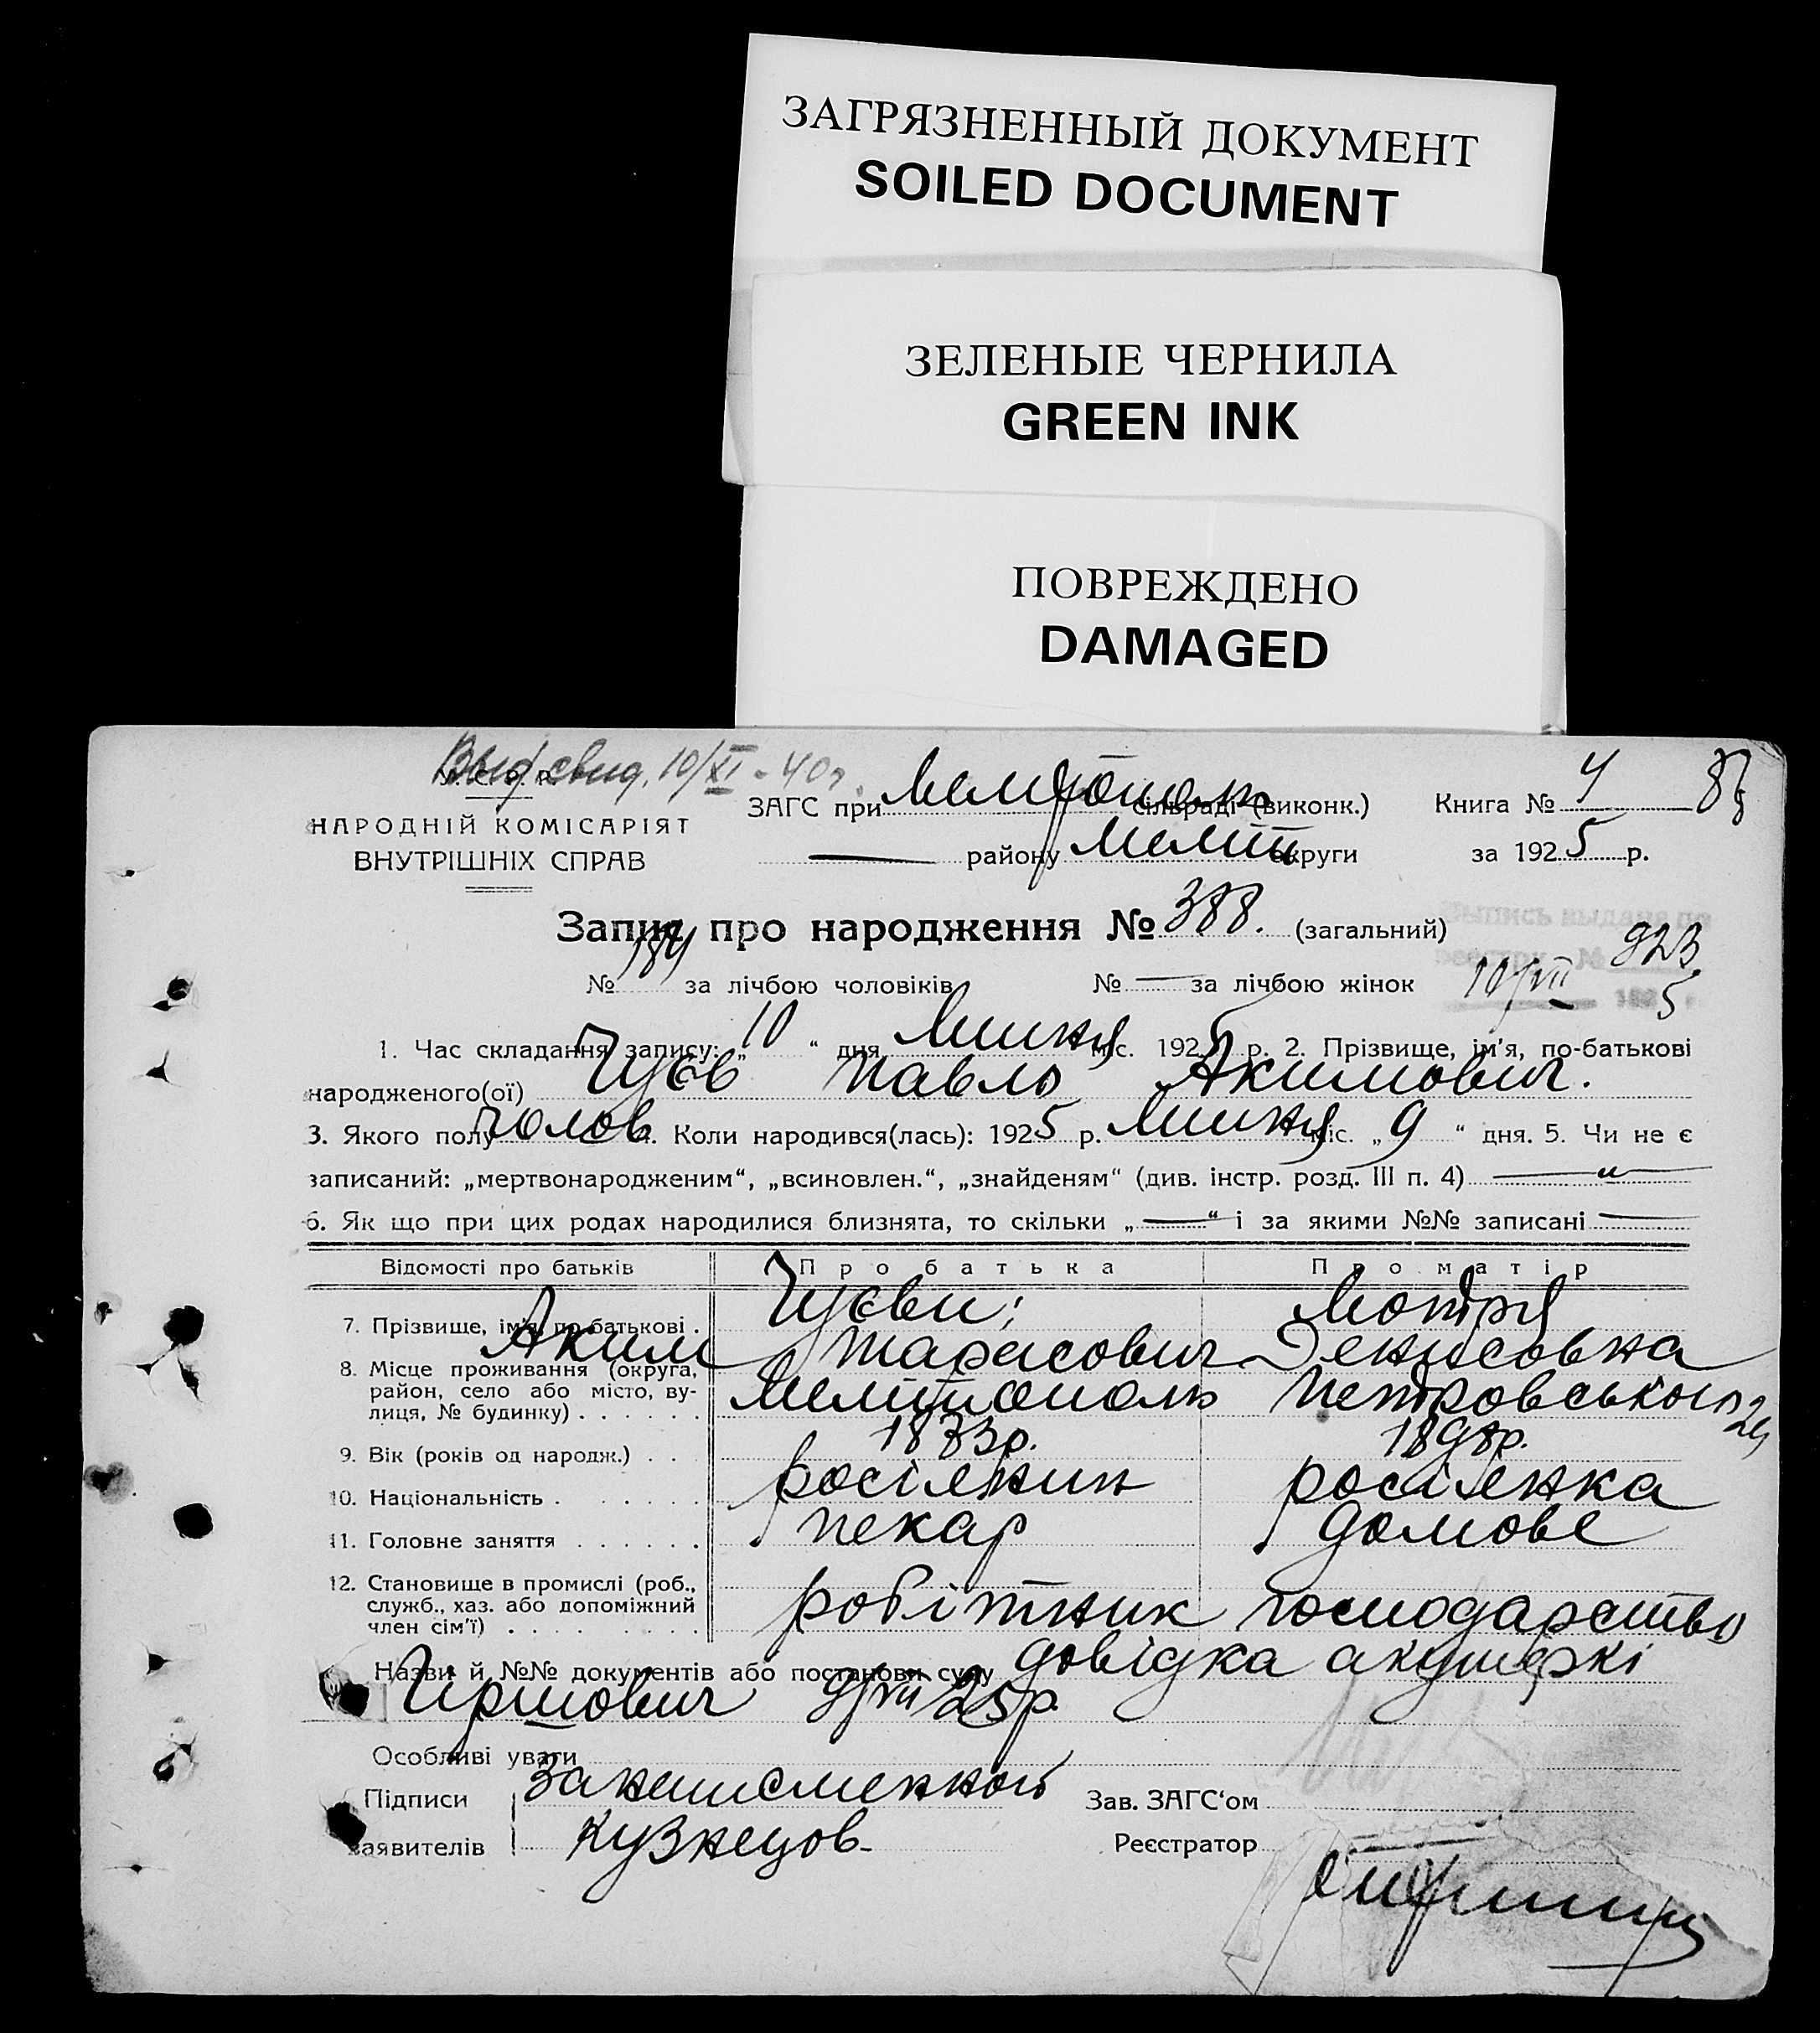 ЗАГРЯЗНЕННЫЙ ДОКУМЕНТ
SOILED DOCUMENT
ЗЕЛЕНЫЕ ЧЕРНИЛА
GREEN INK
ПОВРЕЖДЕНО
DAMAGED
Выд. свид. 10/XI - 40г.
У. С. Р. Р.
НАРОДНІЙ КОМІСАРІЯТ
ВНУТРІШНІХ СПРАВ
ЗАГС при Мелітополь сільраді (виконк.) Книга № 4
— району Меліт округи за 1925 р.
Запис про народження № 388. (загальний)
Выпись выдана по
№ 184 за лічбою чоловіків № — за лічбою жінок
№ 923
10/VII 1925
1. Час складання запису: „10“ дня Липня міс. 1925 р. 2. Прізвище, ім'я, по-батькові
народженого(ої) Чуєв Павло Акимович.
3. Якого полу чолов 4. Коли народився(лась): 1925 р. Липня міс. „9“ дня. 5. Чи не є
записаний: „мертвонародженим“, „всиновлен.“, „знайденям“ (див. інстр. розд. III п. 4) — „ —
6. Як що при цих родах народилися близнята, то скільки „—“ і за якими №№ записані —
Відомості про батьків Про батька Про матір
7. Прізвище, ім'я, по-батькові . Чуєви; Мотря
Аким Тарасович Денисовна
8. Місце проживання (округа,
район, село або місто, ву-
лиця, № будинку) . . . . . . Мелітополь Петровського
9. Вік (років од народж.) . . . 1883р. 1898р.
10. Національність . . . . . . . росіянин росіянка
11. Головне заняття . . . . . . пекар домове
12. Становище в промислі (роб.,
служб., хаз. або допоміжний
член сім'ї) . . . . . . . . робітник господарство
Назви й №№ документів або постанови суду довідка акушеркі
9/VII 25р.
Особливі уваги
Підписи За неписьменного Зав. ЗАГС'ом
заявителів Кузнецов Реєстратор